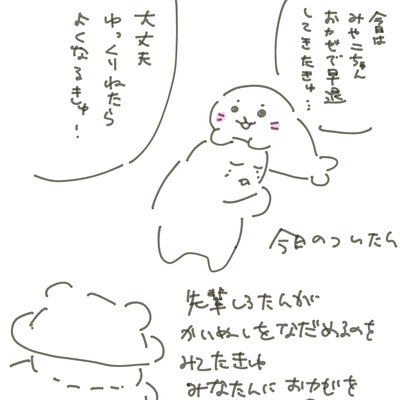 今日は
みやこちゃん
おかぜで早退
してきたきゅ…
大丈夫
ゆっくりねたら
よくなるきゅ!
今日のついたん
先輩しろたんが
かいぬしをなだめるのを
みてたきゅ
みなたんに おかぜを